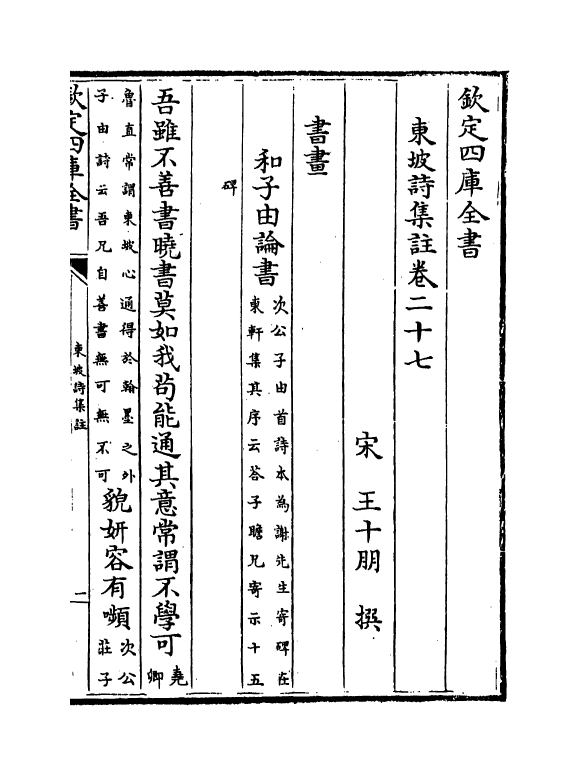 欽定四庫全書
東坡詩集註卷二十七
宋 王十朋 撰
書畫
和子由論書次公子由首詩本為謝先生寄碑在
東軒集其序云荅子瞻兄寄示十五
碑
吾雖不善書曉書莫如我茍能通其意常謂不學可堯
卿
魯直常謂東坡心通得於翰墨之外
子由詩云吾兄自善書無可無不可
貌妍容有嚬次公
莊子
欽定四庫全書
東坡詩集註